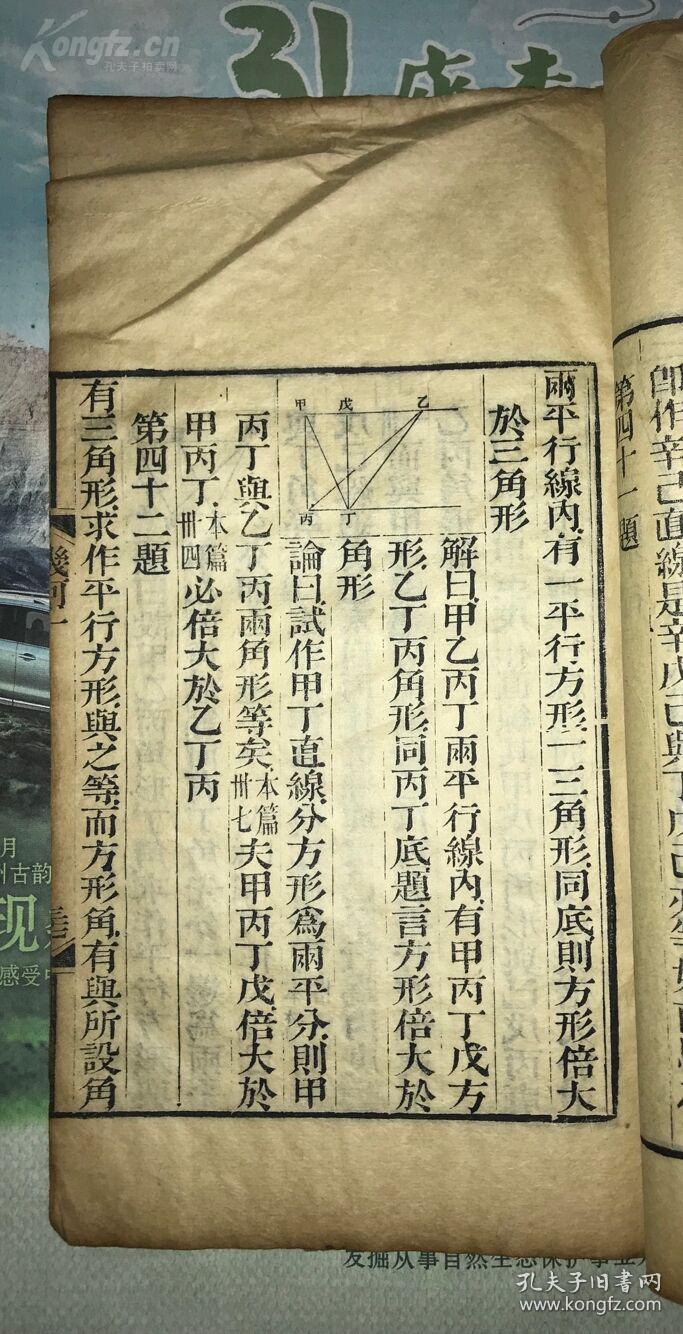 Kongfz.cn
孔夫子拍卖网
第四十一題
兩平行線內有一平行方形一三角形同底則方形倍大
於三角形
甲
戊
乙
丙
丁
解曰甲乙丙丁兩平行線內有甲丙丁戊方
形乙丁丙角形同丙丁底題言方形倍大於
角形
論曰試作甲丁直線分方形為兩平分則甲
丙丁與乙丁丙兩角形等矣本篇卅七夫甲丙丁戊倍大於
甲丙丁本篇卅四必倍大於乙丁丙
第四十二題
有三角形求作平行方形與之等而方形角有與所設角
幾何一
月
州古韵
现
感受
发掘从事自然生态保护事业
孔夫子旧书网
www.kongfz.com